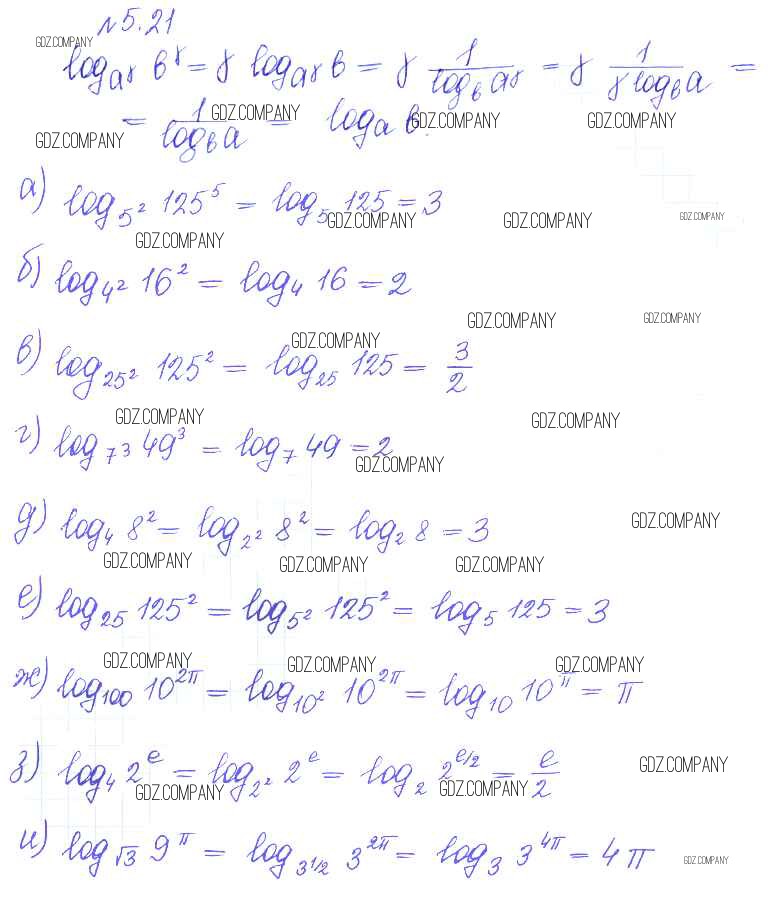 № 5.21
GDZ.COMPANY
log_{a^γ} b^γ = γ log_{a^γ} b = γ \frac{1}{log_b a^γ} = γ \frac{1}{γ log_b a} =
= \frac{1}{log_b a} = log_a b.
GDZ.COMPANY GDZ.COMPANY GDZ.COMPANY GDZ.COMPANY
а) log_{5^2} 125^5 = log_5 125 = 3
GDZ.COMPANY GDZ.COMPANY GDZ.COMPANY
GDZ.COMPANY
б) log_{4^2} 16^2 = log_4 16 = 2
GDZ.COMPANY GDZ.COMPANY
GDZ.COMPANY
в) log_{25^2} 125^2 = log_{25} 125 = \frac{3}{2}
GDZ.COMPANY GDZ.COMPANY
г) log_{7^3} 49^3 = log_7 49 = 2
GDZ.COMPANY
д) log_4 8^2 = log_{2^2} 8^2 = log_2 8 = 3
GDZ.COMPANY
GDZ.COMPANY GDZ.COMPANY GDZ.COMPANY
е) log_{25} 125^2 = log_{5^2} 125^2 = log_5 125 = 3
GDZ.COMPANY GDZ.COMPANY GDZ.COMPANY
ж) log_{100} 10^{2π} = log_{10^2} 10^{2π} = log_{10} 10^π = π
з) log_4 2^e = log_{2^2} 2^e = log_2 2^{e/2} = \frac{e}{2}
GDZ.COMPANY
GDZ.COMPANY GDZ.COMPANY
и) log_{√3} 9^π = log_{3^{1/2}} 3^{2π} = log_3 3^{4π} = 4π
GDZ.COMPANY